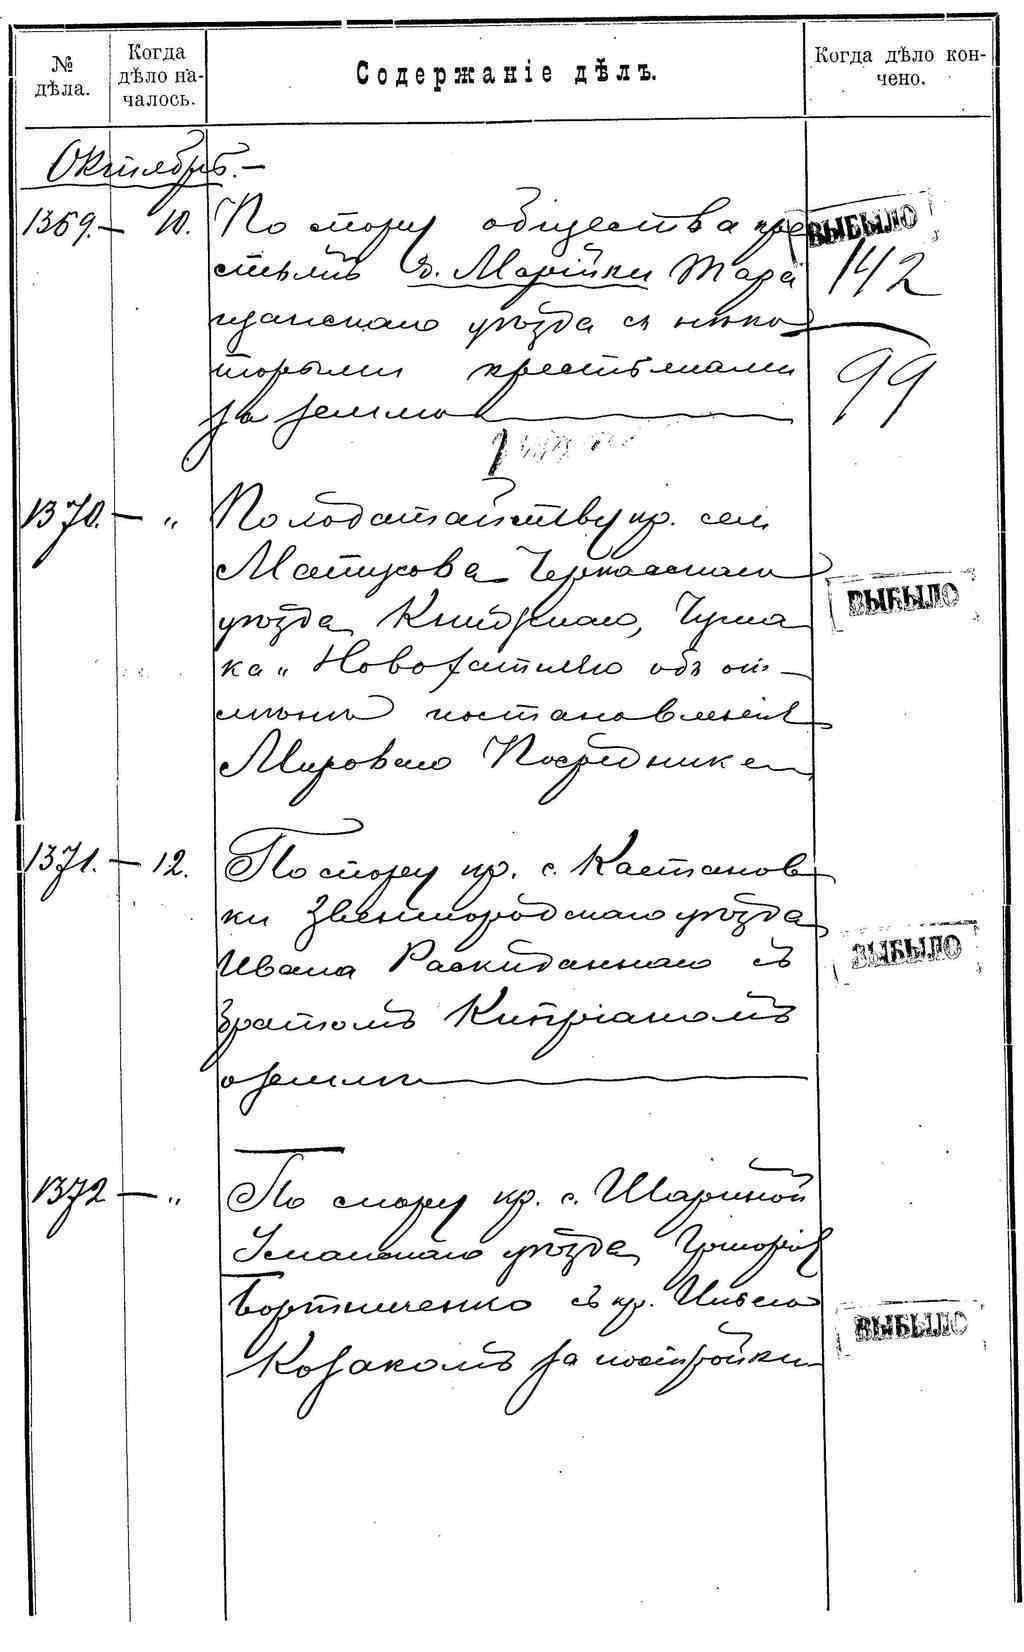 № дѣла.
Когда дѣло на-
чалось.
Содержаніе дѣлъ.
Когда дѣло кон-
чено.
Октябрь.-
1369.- 10. По спору общества кре
ВЫБЫЛО
стьянъ д. Марійки Тара
142
щанскаго уѣзда съ нѣко
торыми крестьянами
99
за землю
1370.- „ По ходатайству кр. села
Матусова Черкасскаго
ВЫБЫЛО
уѣзда, Чума
ка и объ от-
мѣнѣ постановленія
Мироваго Посредника
1371.- 12. По спору кр. с. Кастанов
ки Звенигородскаго уѣзда
Ивана Раскиданнаго съ
ВЫБЫЛО
братомъ Кипріаномъ
о землѣ
1372 - „ По спору кр. с. Шариной
Уманскаго уѣзда Григорія
Бортниченко съ кр.
ВЫБЫЛО
Козакомъ за постройки